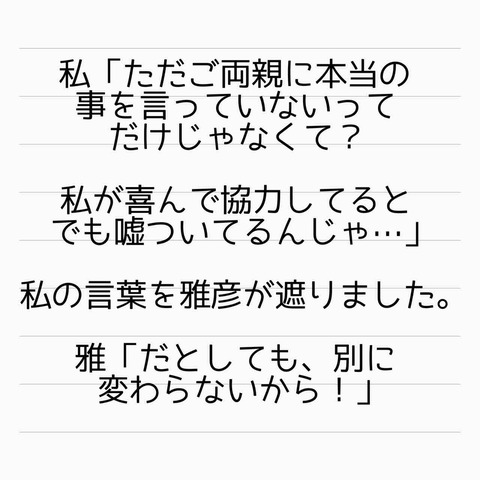 私「ただご両親に本当の
事を言っていないって
だけじゃなくて？
私が喜んで協力してると
でも嘘ついてるんじゃ…」
私の言葉を雅彦が遮りました。
雅「だとしても、別に
変わらないから！」